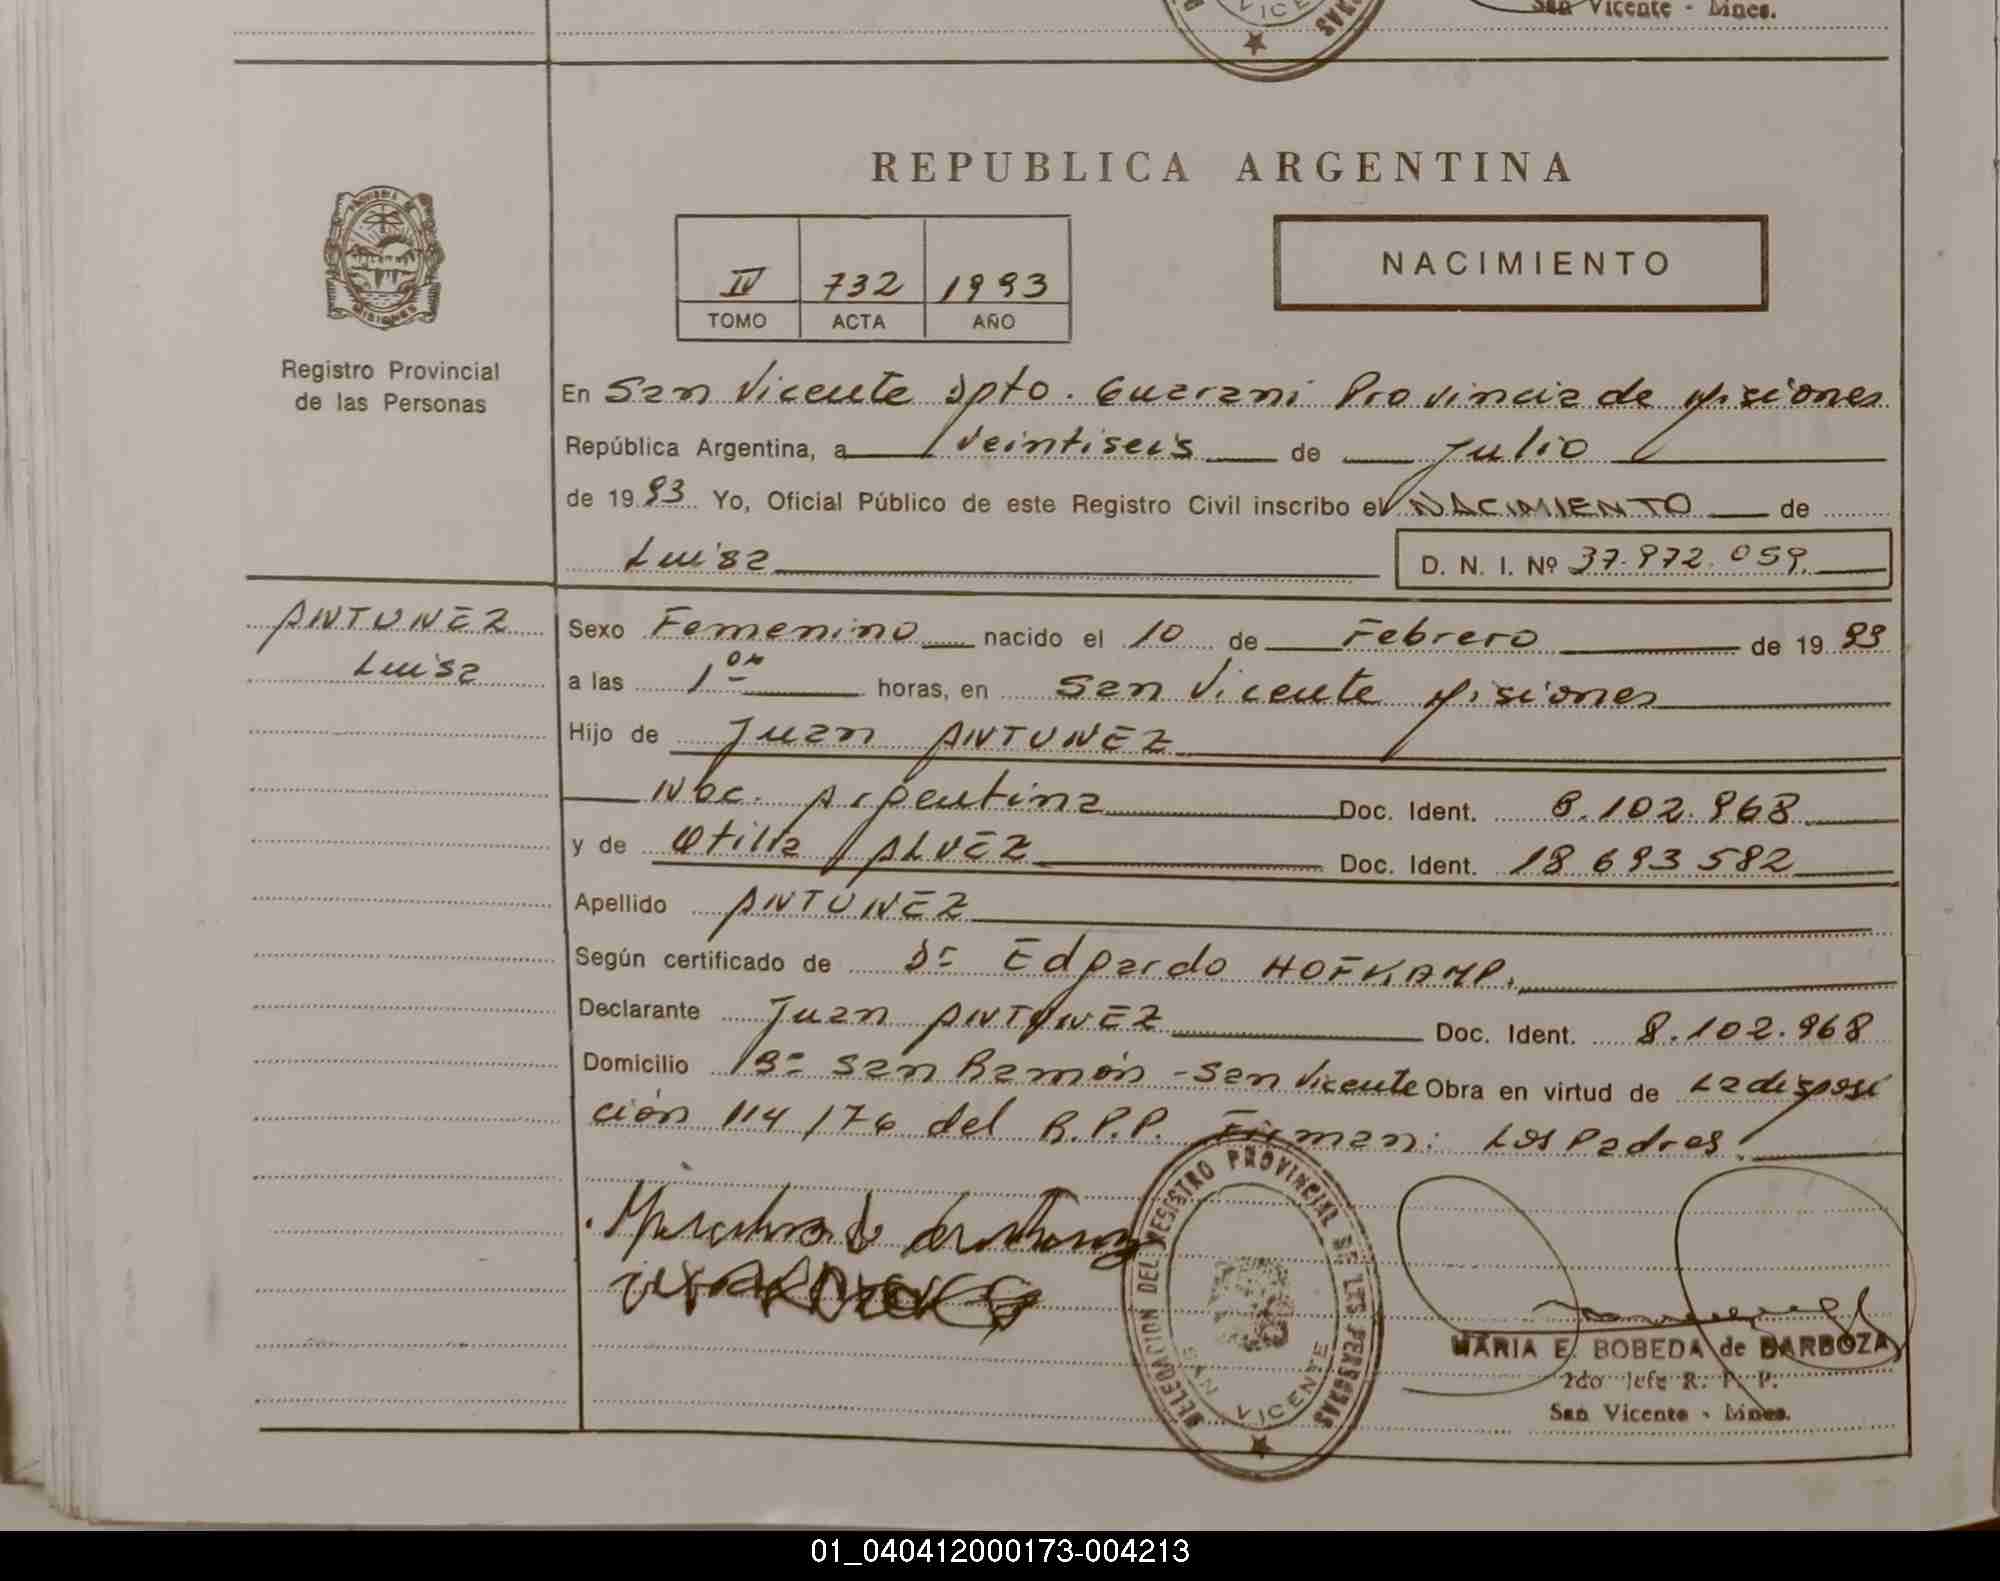 San Vicente - Mnes.
REPUBLICA ARGENTINA
NACIMIENTO
IV 732 1993
TOMO ACTA AÑO
Registro Provincial
de las Personas
En San Vicente Dpto. Guarani Provincia de Misiones
República Argentina, a Veintiseis de Julio
de 1993 Yo, Oficial Público de este Registro Civil inscribo el NACIMIENTO de
Luisa D. N. I. Nº 37.972.059.
ANTUNEZ
Luisa
Sexo Femenino nacido el 10 de Febrero de 1993
a las 1 horas, en San Vicente Misiones
Hijo de Juan ANTUNEZ
Nac. Argentina Doc. Ident. 8.102.968
y de Otilia ALVEZ Doc. Ident. 18 693 582
Apellido ANTUNEZ
Según certificado de Dr Edgardo HOFKAMP.
Declarante Juan ANTUNEZ Doc. Ident. 8.102.968
Domicilio Bº San Ramón - San Vicente Obra en virtud de La disposi
ción 114/76 del R.P.P. Firman: Los Padres.
DELEGACION DEL REGISTRO PROVINCIAL DE LAS PERSONAS
SAN VICENTE
MARIA E. BOBEDA de BARBOZA
2do Jefe R. P. P.
San Vicente - Mnes.
01_040412000173-004213